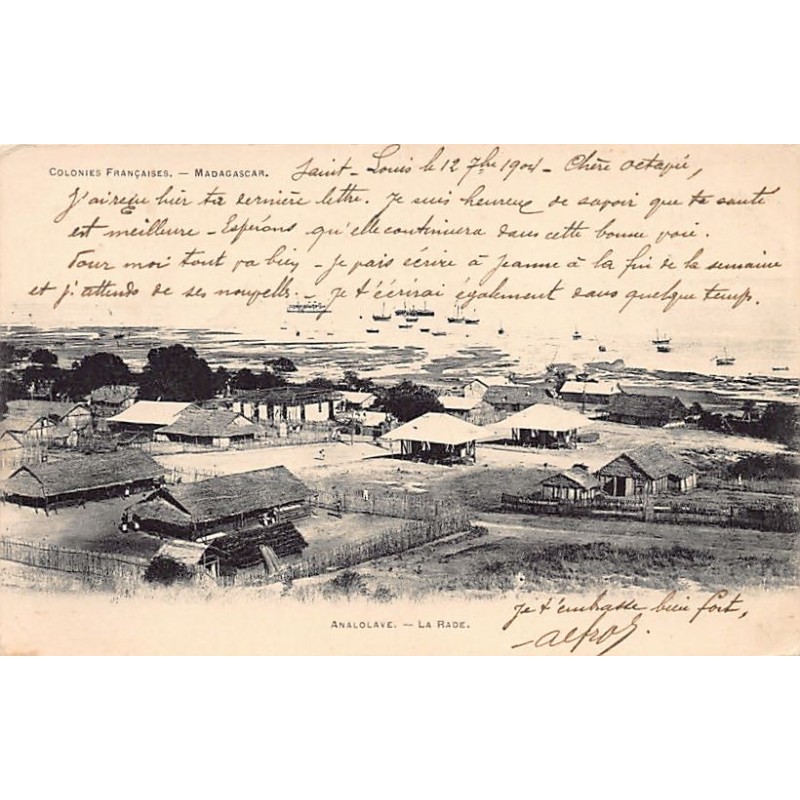 COLONIES FRANÇAISES. — MADAGASCAR.
Saint-Louis le 12 7bre 1904 - Chère Octavie,
J'ai reçu hier ta dernière lettre. Je suis heureux de savoir que ta santé
est meilleure - Espérons qu'elle continuera dans cette bonne voie.
Pour moi tout va bien - Je vais écrire à Jeanne à la fin de la semaine
et j'attends de ses nouvelles. Je t'écrirai également dans quelque temps.
ANALOLAVE. — LA RADE.
Je t'embrasse bien fort,